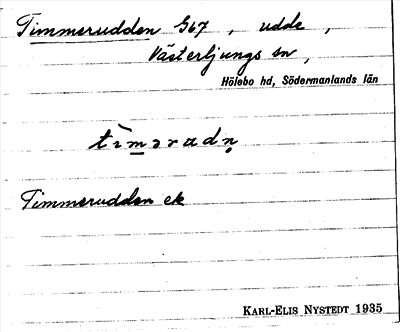 Timmerudden G67, udde,
Västerljungs sn,
Hölebo hd, Södermanlands län
Timmerudden ek
KARL-ELIS NYSTEDT 1935